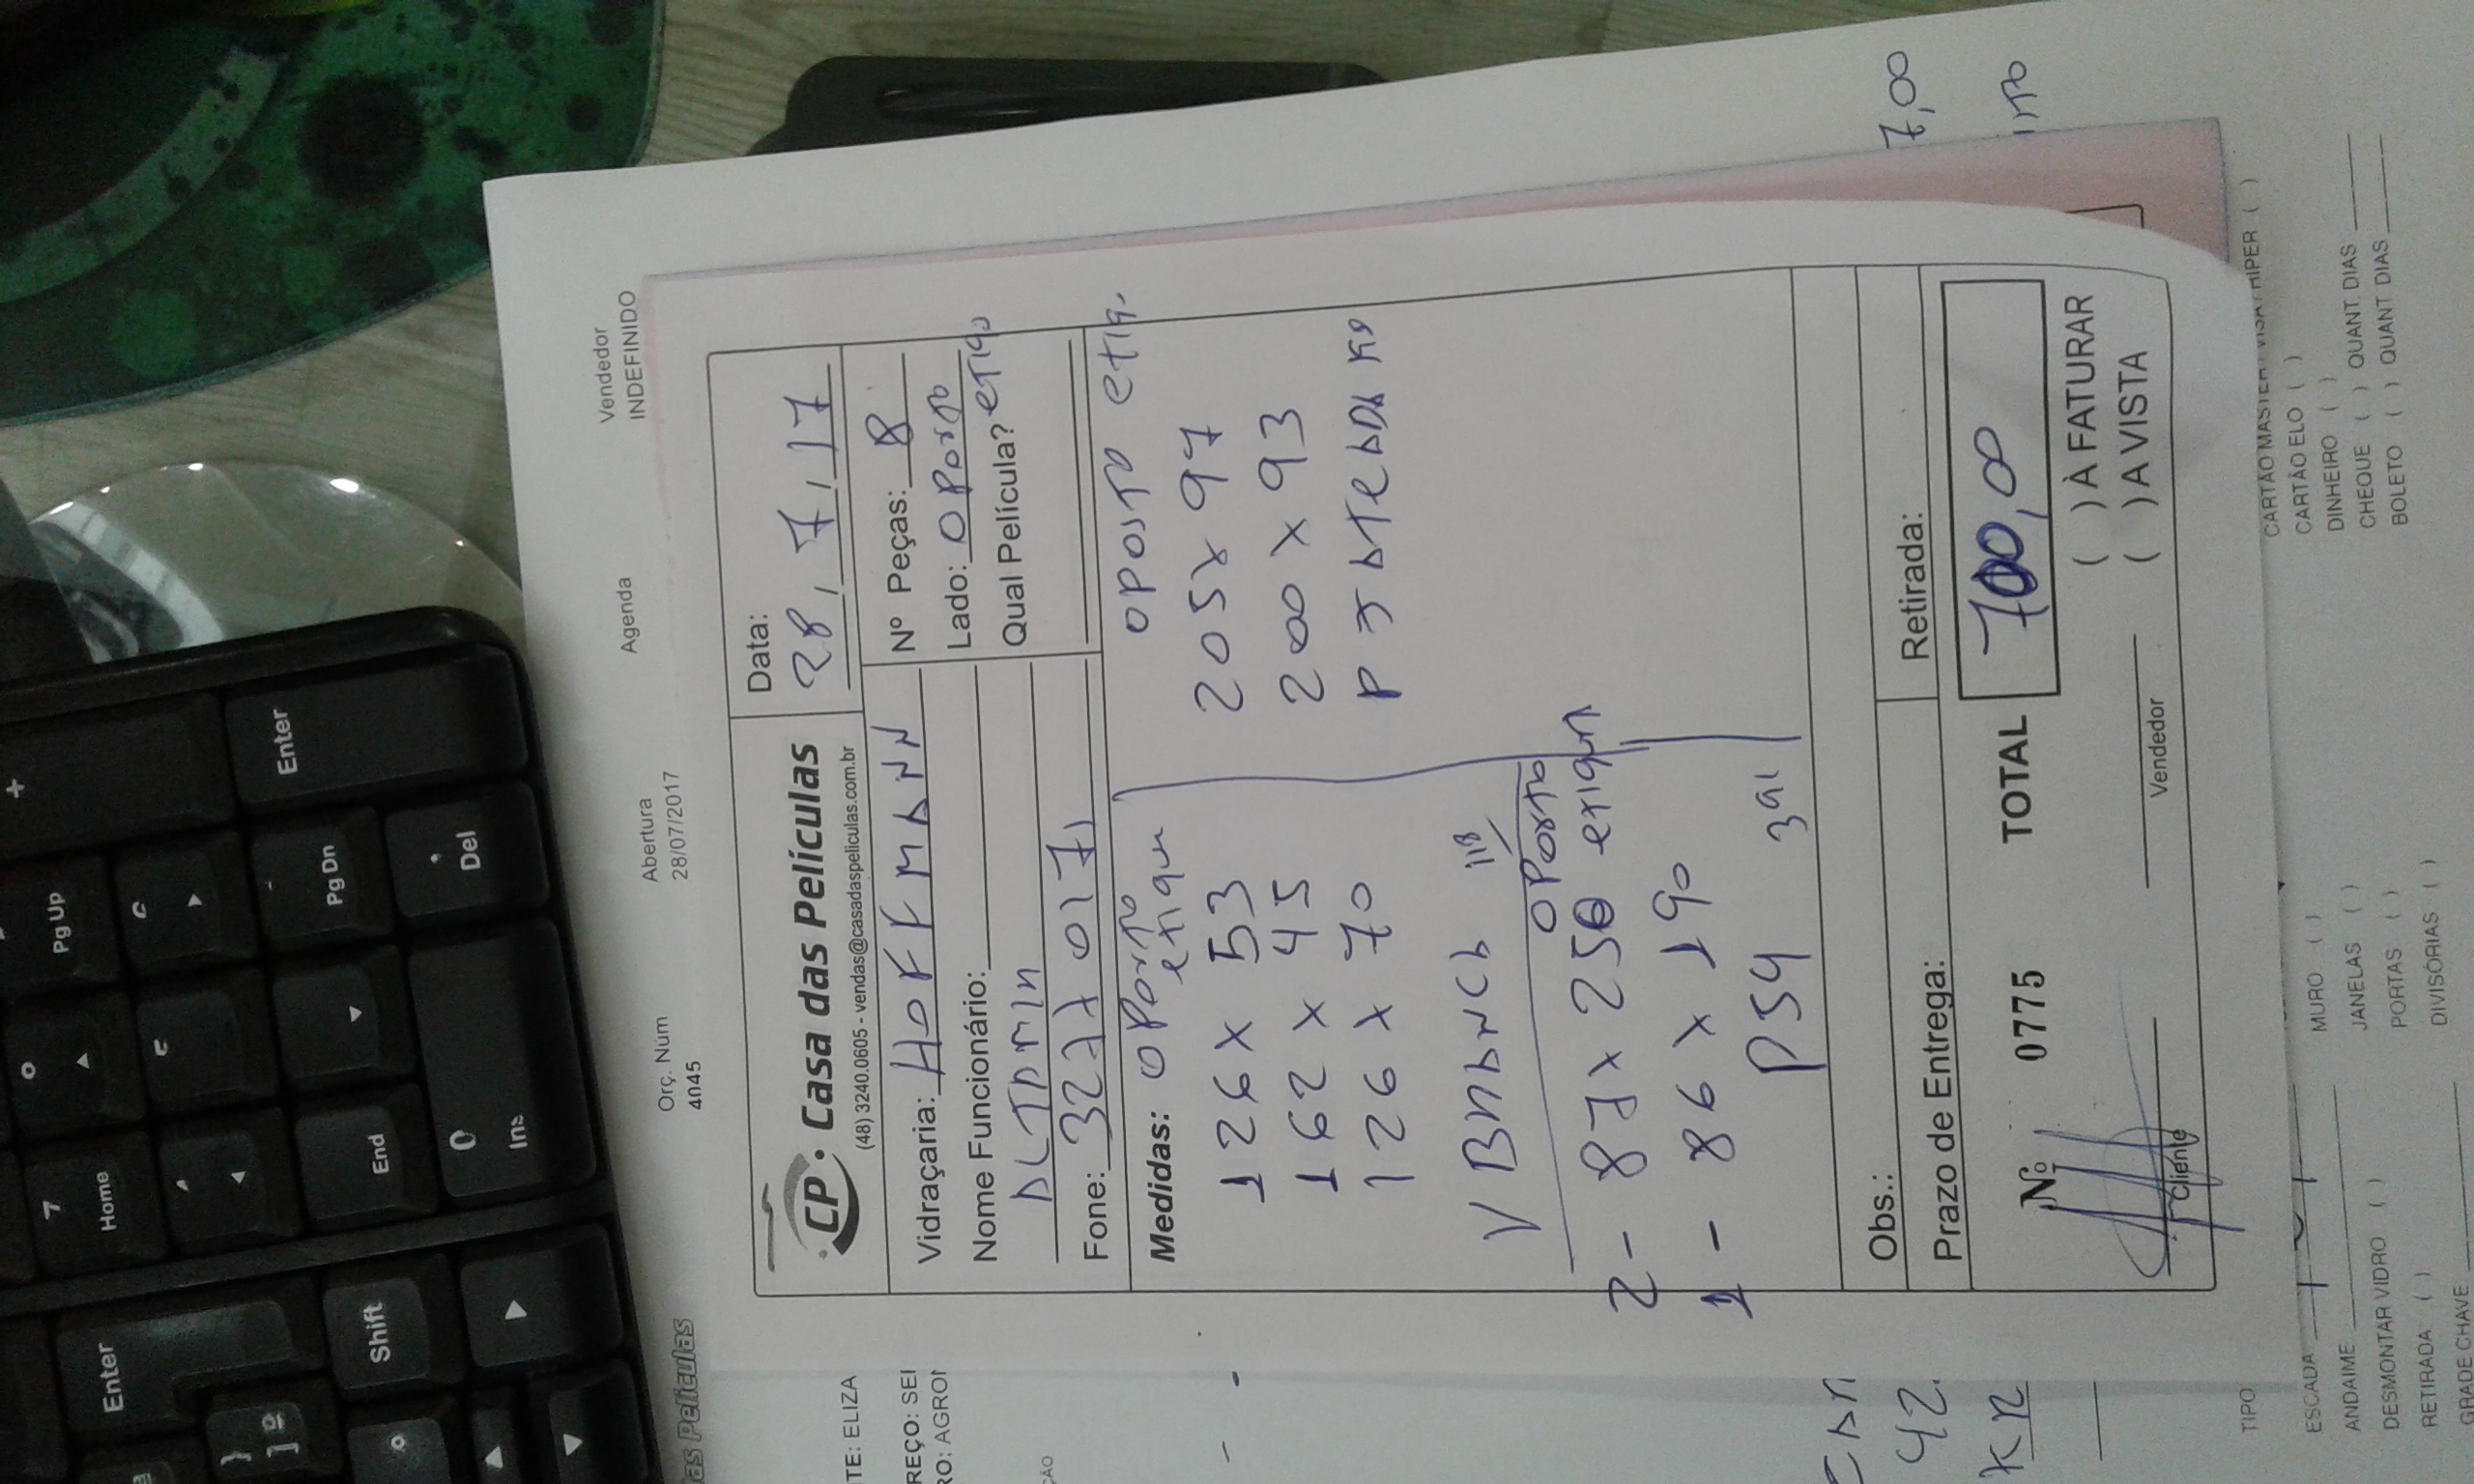 Vendedor
INDEFINIDO
Agenda
Abertura
28/07/2017
Orç. Núm
4045
CP. Casa das Películas
(48) 3240.0605 - vendas@casadaspeliculas.com.br
Data:
28, 7, 17
Vidraçaria: HOFFMANN
Nome Funcionário:
ALTAMIR
Fone: 3277 0171
Nº Peças: 8
Lado: OPOSTO
Qual Película? ETIQ
Medidas: OPOSTO
etiqu
126 x 53
162 x 45
126 x 70
OPOSTO etiq.
205 x 97
200 x 93
V BRANCA
OPOSTO
2 - 87 x 250 etiqueta
1 - 86 x 190
PS4
Obs.:
Prazo de Entrega:
Retirada:
Nº 0775 TOTAL 700,00
( ) À FATURAR
( ) A VISTA
Cliente
Vendedor
7,00
42.
TE: ELIZA
REÇO: SE
RO: AGRO
ÇÃO
as Películas
TIPO
ESCADA
ANDAIME
DESMONTAR VIDRO ( )
RETIRADA ( )
GRADE CHAVE
MURO ( )
JANELAS ( )
PORTAS ( )
DIVISÓRIAS ( )
CARTÃO MASTER VISA HIPER ( )
CARTÃO ELO ( )
DINHEIRO ( )
CHEQUE ( ) QUANT. DIAS
BOLETO ( ) QUANT DIAS
+
Enter
Pg Up
Pg Dn
Del
7
Home
End
0
Ins
Enter
Shift